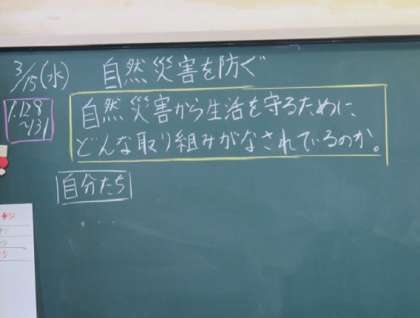 3/15(水) 自然災害を防ぐ
P.129
~131
自然災害から生活を守るために
どんな取り組みがなされているのか。
自分たち